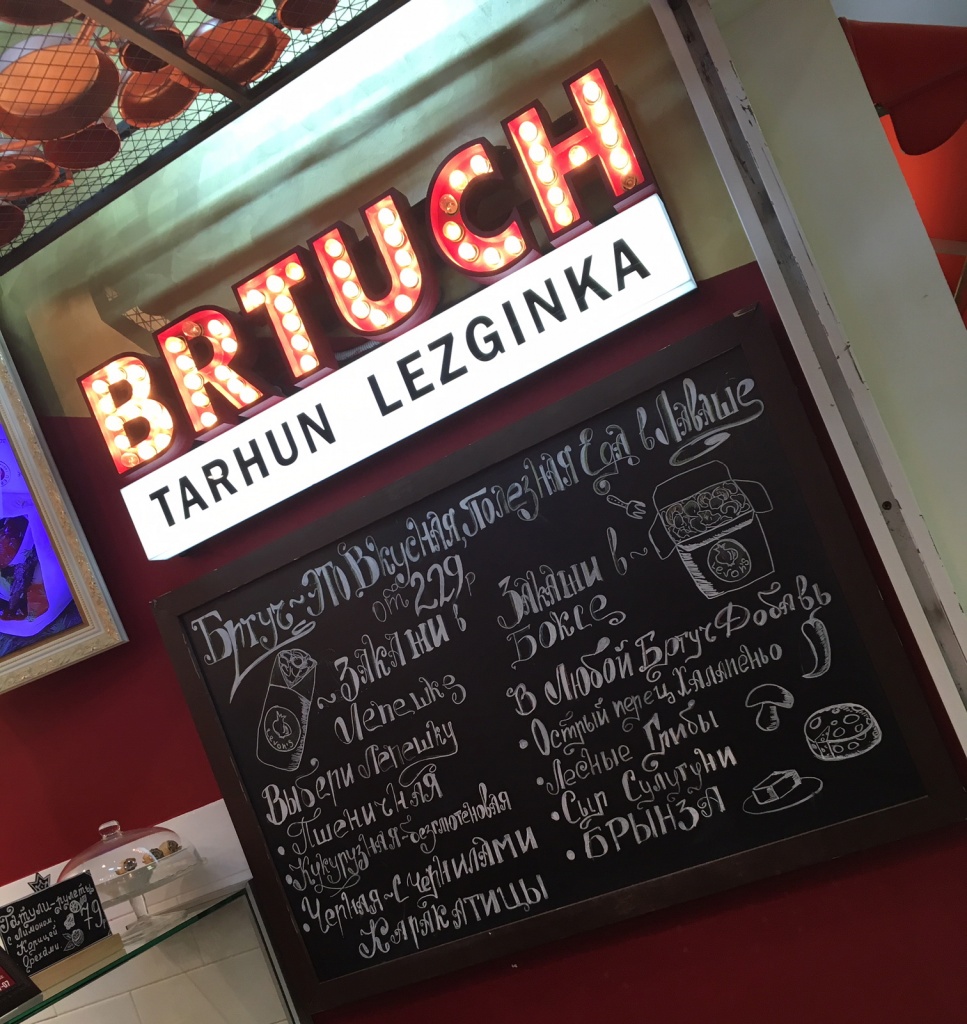 BRTUCH
TARHUN LEZGINKA
Бртуч~это Вкусная, Полезная Еда в Лаваше
от 229р
~Закажи в
Лепешке
Выбери Лепешку
• Пшеничная
• Кукурузная~безглютеновая
• Черная~с чернилами
Каракатицы
Закажи в~
Боксе
В Любой Бртуч Добавь
• Острый перец Халапеньо
• Лесные Грибы
• Сыр Сулугуни
• БРЫНЗА
с Лимоном,
Корицей
Орехами